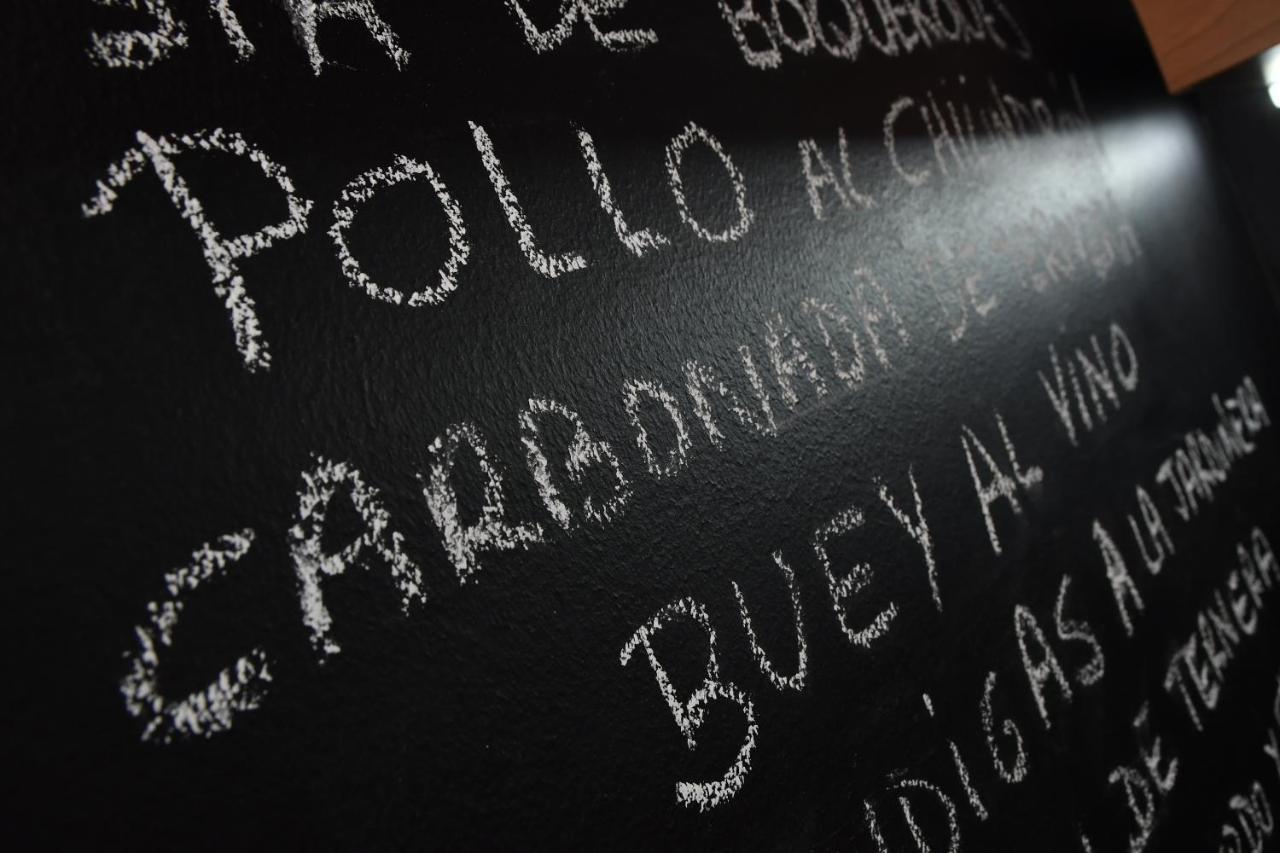 STA DE BOQUERONES
POLLO AL CHILINDRÓN
CARBONADA DE
BUEY AL VINO
DIGAS A LA JARDINERA
DE TERNERA